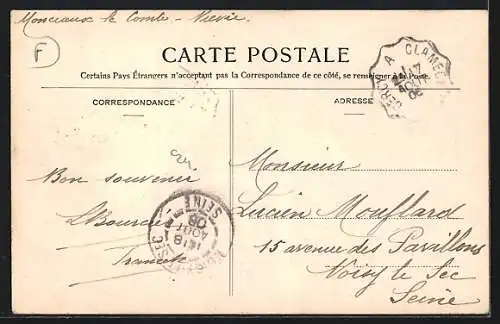 Monceaux le Comte - Nièvre
F
CARTE POSTALE
Certains Pays Étrangers n'acceptent pas la Correspondance de ce côté, se renseigner à la Poste.
CORRESPONDANCE
ADRESSE
A CLAMECY
Bon souvenir
Monsieur
Lucien Mouflard
15 avenue des Pavillons
Noisy le Sec
Seine
SEINE